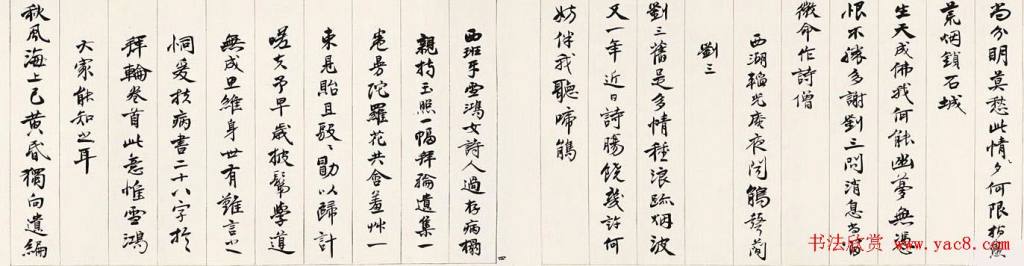 尚分明莫愁此情夕何限指點
荒烟鎖石城
生天成佛我何能幽夢無憑
恨不勝多謝劉三問消息尚留
微命作詩僧
西湖韜光庵夜聞鵑聲簡
劉三
劉三舊是多情種浪跡烟波
又一年近日詩腸饒幾許何
妨伴我聽啼鵑
西班牙雪鴻女詩人過存病榻
親持玉照一幅拜輪遺集一
卷曼陀羅花共含羞艸一
束見貽且殷〻勖以歸計
嗟夫予早歲披鬀學道
無成思維身世有難言之
恫爰扶病書二十八字於
拜輪卷首此意惟雪鴻
大家能知之耳
秋風海上已黃昏獨向遺編
四
书法欣赏 www.yac8.com